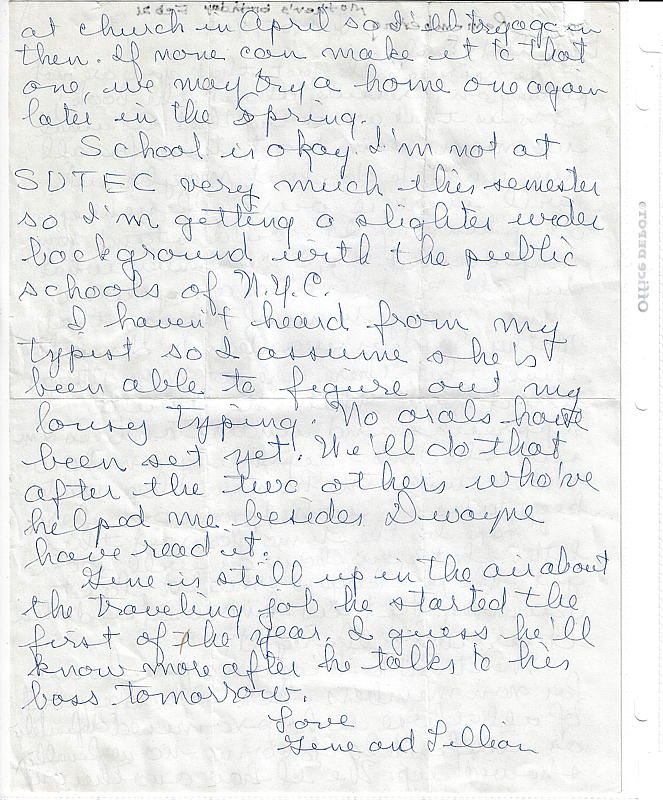 at church in April so I'll try again
then. If none can make it to that
one, we may try a home one again
later in the Spring.
School is okay. I'm not at
SUTEC very much this semester
so I'm getting a slighter wider
background with the public
schools of N.Y.C.
I haven't heard from my
typist so I assume she's
been able to figure out my
lousy typing. No orals have
been set yet. We'll do that
after the two others who've
helped me besides Dwayne
have read it.
Gene is still up in the air about
the traveling job he started the
first of the year. I guess he'll
know more after he talks to his
boss tomorrow.
Love
Gene and Lillian
Office DEPOT